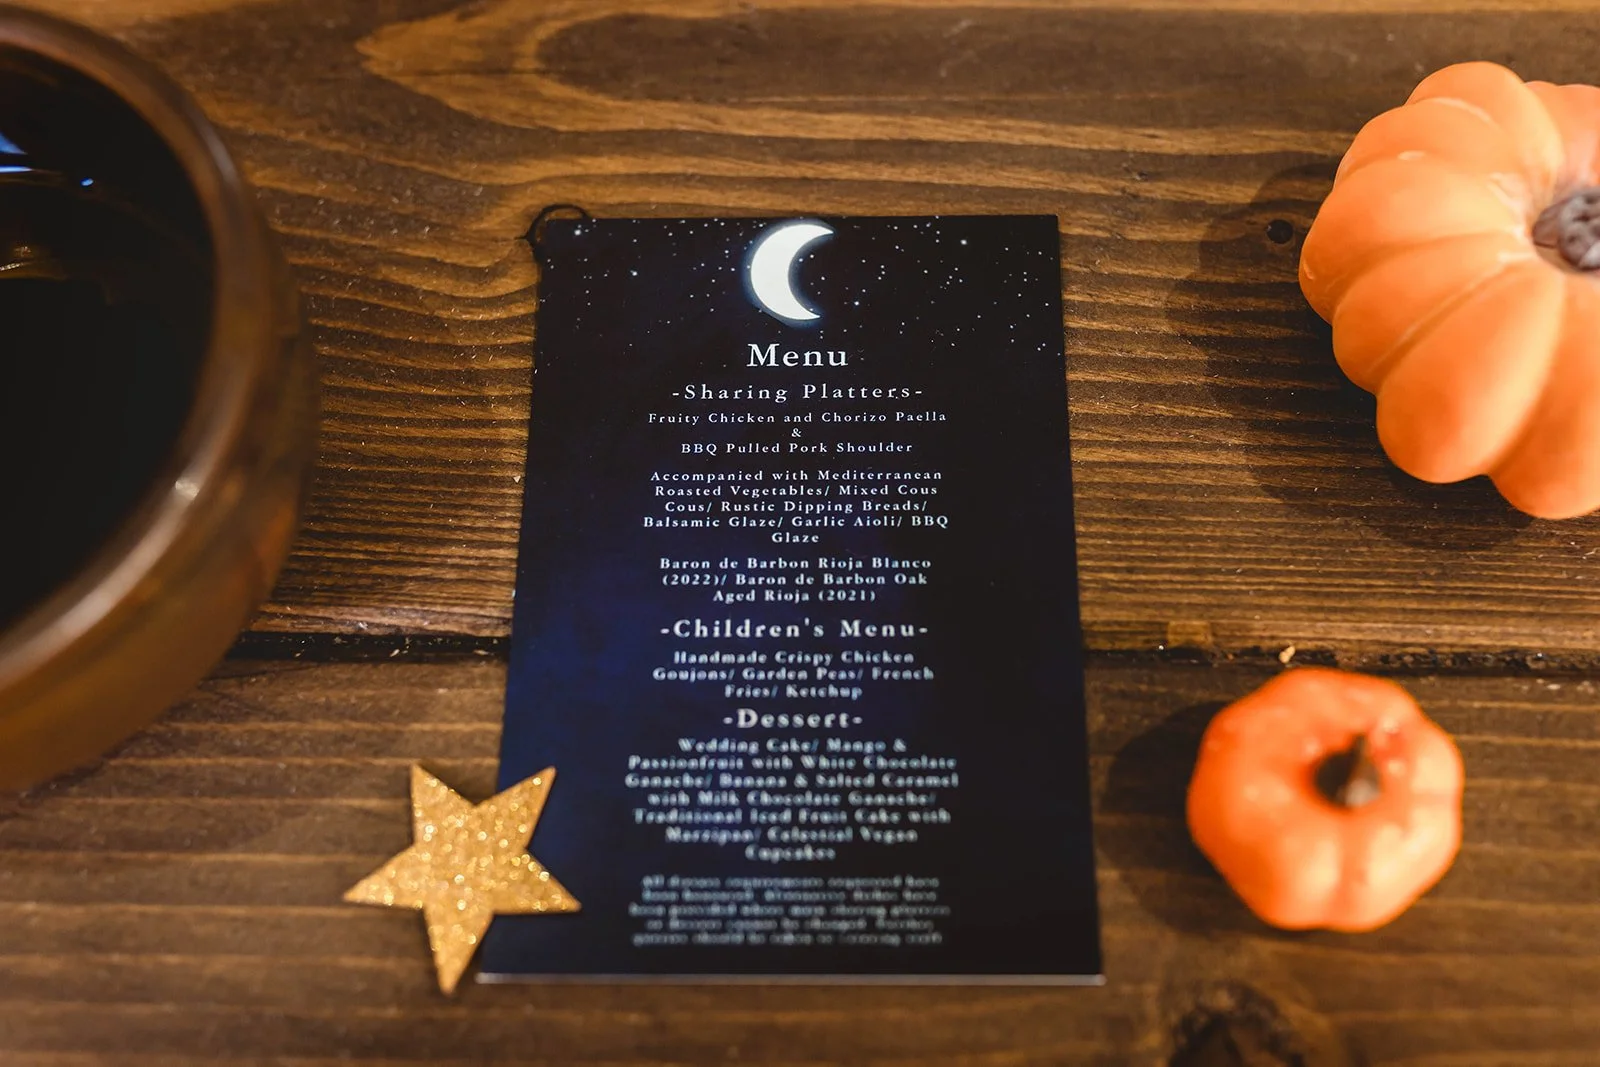 Menu
-Sharing Platters-
Fruity Chicken and Chorizo Paella
&
BBQ Pulled Pork Shoulder
Accompanied with Mediterranean
Roasted Vegetables/ Mixed Cous
Cous/ Rustic Dipping Breads/
Balsamic Glaze/ Garlic Aioli/ BBQ
Glaze
Baron de Barbon Rioja Blanco
(2022)/ Baron de Barbon Oak
Aged Rioja (2021)
-Children's Menu-
Handmade Crispy Chicken
Goujons/ Garden Peas/ French
Fries/ Ketchup
-Dessert-
Wedding Cake/ Mango &
Passionfruit with White Chocolate
Ganache/ Banana & Salted Caramel
with Milk Chocolate Ganache/
Traditional Iced Fruit Cake with
Marzipan/ Celestial Vegan
Cupcakes
All dietary requirements requested have
been
been provided where
or dessert cannot be changed.
should be taken to catering staff